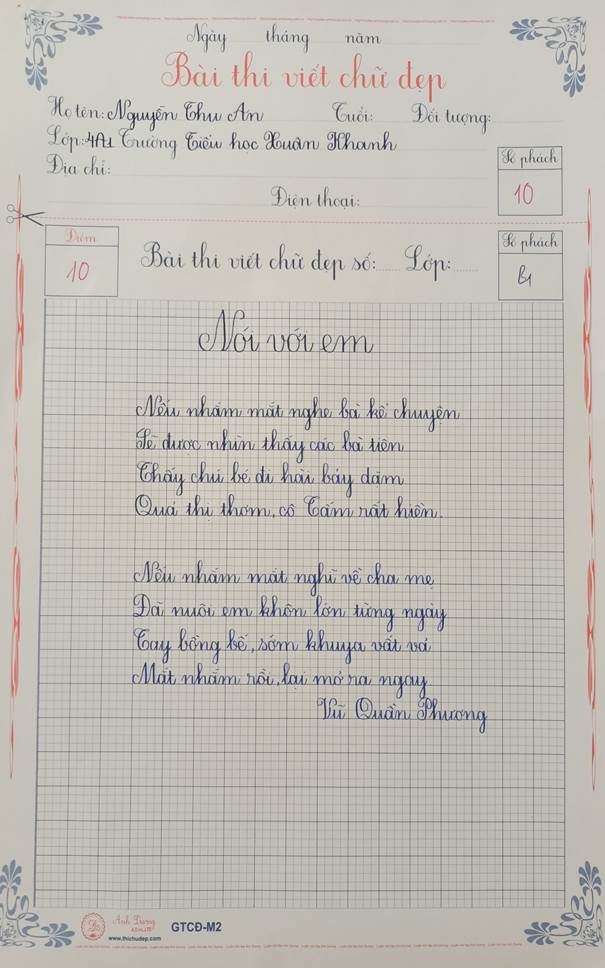 Ngày tháng năm
Bài thi viết chữ đẹp
Họ tên: Nguyễn Thu An Tuổi: Đối tượng:
Lớp: 4A1 Trường Tiểu học Xuân Khanh
Địa chỉ:
Số phách
10
Điện thoại:
Điểm
10
Bài thi viết chữ đẹp số: Lớp:
Số phách
Nói với em
Nếu nhắm mắt nghe bà kể chuyện
Sẽ được nhìn thấy các bà tiên
Thấy chú bé đi hài bảy dặm
Quả thị thơm, cô Tấm rất hiền.
Nếu nhắm mắt nghĩ về cha mẹ
Đã nuôi em khôn lớn từng ngày
Tay bồng bế, sớm khuya vất vả
Mắt nhắm rồi, lại mở ra ngay.
Vũ Quần Phương
Ánh Dương
www.thichudep.com
GTCĐ-M2